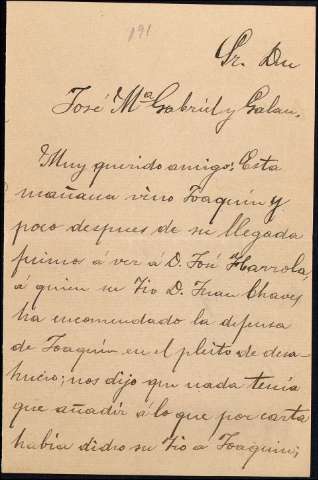 191
Sr. Dn
José Mª Gabriel y Galan.
Muy querido amigo: Esta
mañana vino Joaquín y
poco despues de su llegada
fuimos á ver á D. José
á quien su tio D. Juan Chaves
ha encomendado la defensa
de Joaquín en el pleito de desa-
hucio; nos dijo que nada tenía
que añadir á lo que por carta
había dicho su tio á Joaquin;